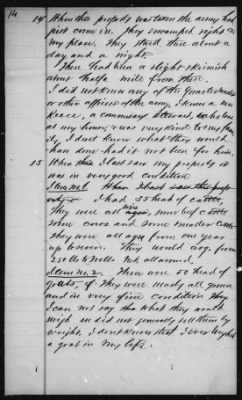 14
14 When this property was taken the army had
just come in. They encamped right on
my place. They staid there about a
day and a night.
There had been a slight skirmish
about half a mile from there.
I did not know any of the Quarter
or other officers of the army, I knew a
a commissary at
my house, was very kind to my fam
ily, I don't know what they would
have done had it not been for him.
15 When I last saw my property it
was in very good condition
Item no. 1. When I last saw the
I had 55 head of cattle,
They were all some beef cattle
some cows and some smaller cattle
They were all from one year
up
Item no. 2. There were 50 head of
goats, They were nearly all grown
and in very fine condition They
I can not say what they would
weigh we did not generally sell them by
weight. I don't know that I ever weighed
a goat in my life.